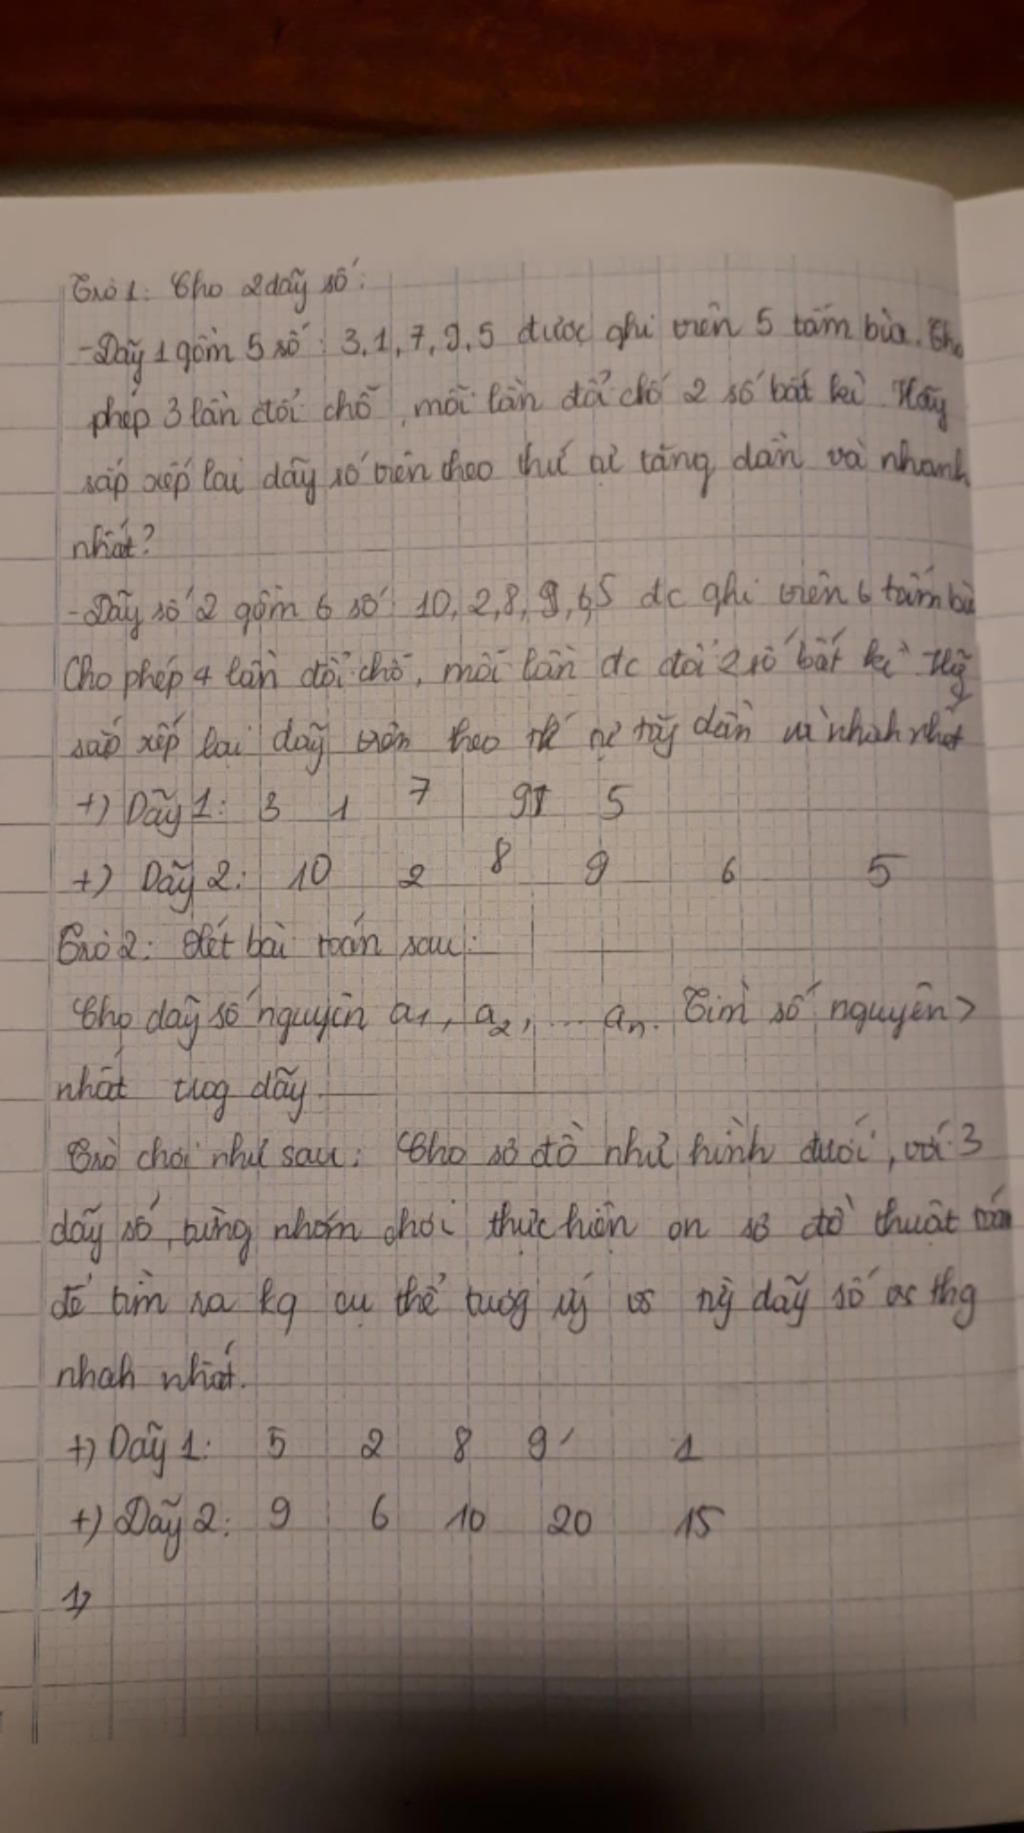 Trò 1: Cho 2 dãy số:
- Dãy 1 gồm 5 số: 3, 1, 7, 9, 5 được ghi trên 5 tấm bìa. Cho
phép 3 lần đổi chỗ, mỗi lần đổi chỗ 2 số bất kì. Hãy
sắp xếp lại dãy số trên theo thứ tự tăng dần và nhanh
nhất?
- Dãy số 2 gồm 6 số: 10, 2, 8, 9, 6, 5 dc ghi trên 6 tấm bìa
Cho phép 4 lần đổi chỗ, mỗi lần dc đổi 2 số bất kì. Hãy
sắp xếp lại dãy trên theo tự dần và nhah nhất
+) Dãy 1: 3 1 7 9 5
+) Dãy 2: 10 2 8 9 6 5
Trò 2: Xét bài toán sau:
Cho dãy số nguyên a1, a2, ... an. Tìm số nguyên >
nhất trog dãy
Trò chơi như sau: Cho sơ đồ như hình dưới, với 3
dãy số, từng nhóm chơi thực hiện on sơ đồ thuật toán
để tìm ra kq cụ thể tươg ứg vs dãy số thg
nhah nhất.
+) Dãy 1: 5 2 8 9 1
+) Dãy 2: 9 6 10 20 15
1)